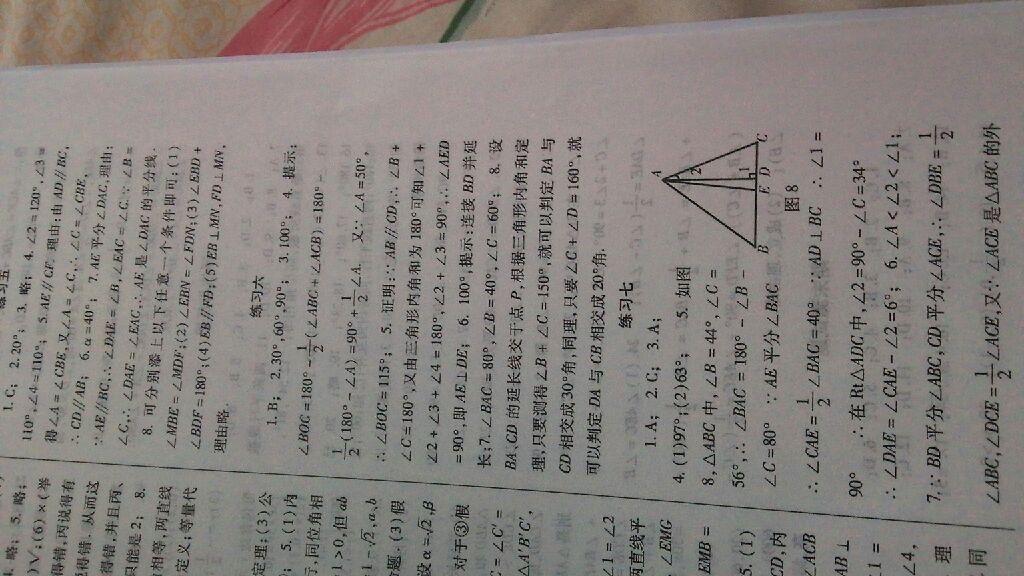 练习五
1. C; 2. 20°; 3. 略; 4. ∠2=120°,∠3=
110°,∠4=110°; 5. AE∥CF. 理由:由 AD∥BC,
得∠A=∠CBE,又∠A=∠C,∴∠C=∠CBE,
∴CD∥AB; 6. α=40°; 7. AE 平分∠DAC,理由:
∵AE∥BC,∴∠DAE=∠B,∠EAC=∠C.∵∠B=
∠C,∴∠DAE=∠EAC,∴AE 是∠DAC 的平分线.
8. 可分别添上以下任意一个条件即可:(1)
∠MBE=∠MDF;(2)∠EBN=∠FDN;(3)∠EBD+
∠BDF=180°;(4)EB∥FD;(5)EB⊥MN,FD⊥MN,
理由略.
练习六
1. B; 2. 30°,60°,90°; 3. 100°; 4. 提示:
∠BOC=180°-1/2(∠ABC+∠ACB)=180°-
1/2(180°-∠A)=90°+1/2∠A. 又∵∠A=50°
∴∠BOC=115°; 5. 证明:∵AB∥CD,∴∠B+
∠C=180°,又由三角形内角和为 180°可知∠1+
∠2+∠3+∠4=180°,∠2+∠3=90°,∴∠AED
=90°,即 AE⊥DE; 6. 100°;提示:连接 BD 并延
长; 7. ∠BAC=80°,∠B=40°,∠C=60°. 8. 设
BA,CD 的延长线交于点 P,根据三角形内角和定
理,只要测得∠B+∠C=150°,就可以判定 BA 与
CD 相交成 30°角,同理,只要∠C+∠D=160°,就
可以判定 DA 与 CB 相交成 20°角.
练习七
1. A; 2. C; 3. A;
4. (1)97°;(2)63°; 5. 如图
8,△ABC 中,∠B=44°,∠C=
56°,∴∠BAC=180°-∠B-
∠C=80° ∵AE 平分∠BAC
A
1
2
B E D C
图 8
∴∠CAE=1/2∠BAC=40° ∵AD⊥BC ∴∠1=
90° ∴在 Rt△ADC 中,∠2=90°-∠C=34°
∴∠DAE=∠CAE-∠2=6°; 6. ∠A<∠2<∠1;
7. ∵BD 平分∠ABC,CD 平分∠ACE,∴∠DBE=1/2
∠ABC,∠DCE=1/2∠ACE,又∵∠ACE 是△ABC 的外
略; 5. 略;
)√;(6)×(举
得错,丙说得有
说得错. 从而这
得错,并且丙、
只能是 2; 8.
相等,两直线
定义;等量代
定理;(3)公
; 5. (1)内
行,同位角相
1>0,但 ab
1-√2,a、b
题. (3)假
设 α=√2,β
对于③假
C=∠C'=
△A'B'C',
∠1=∠2
两直线平
,∠EMG
EMB=
5. (1)
CD,内
∠ACB
AB⊥
1=
∠4,
理
同